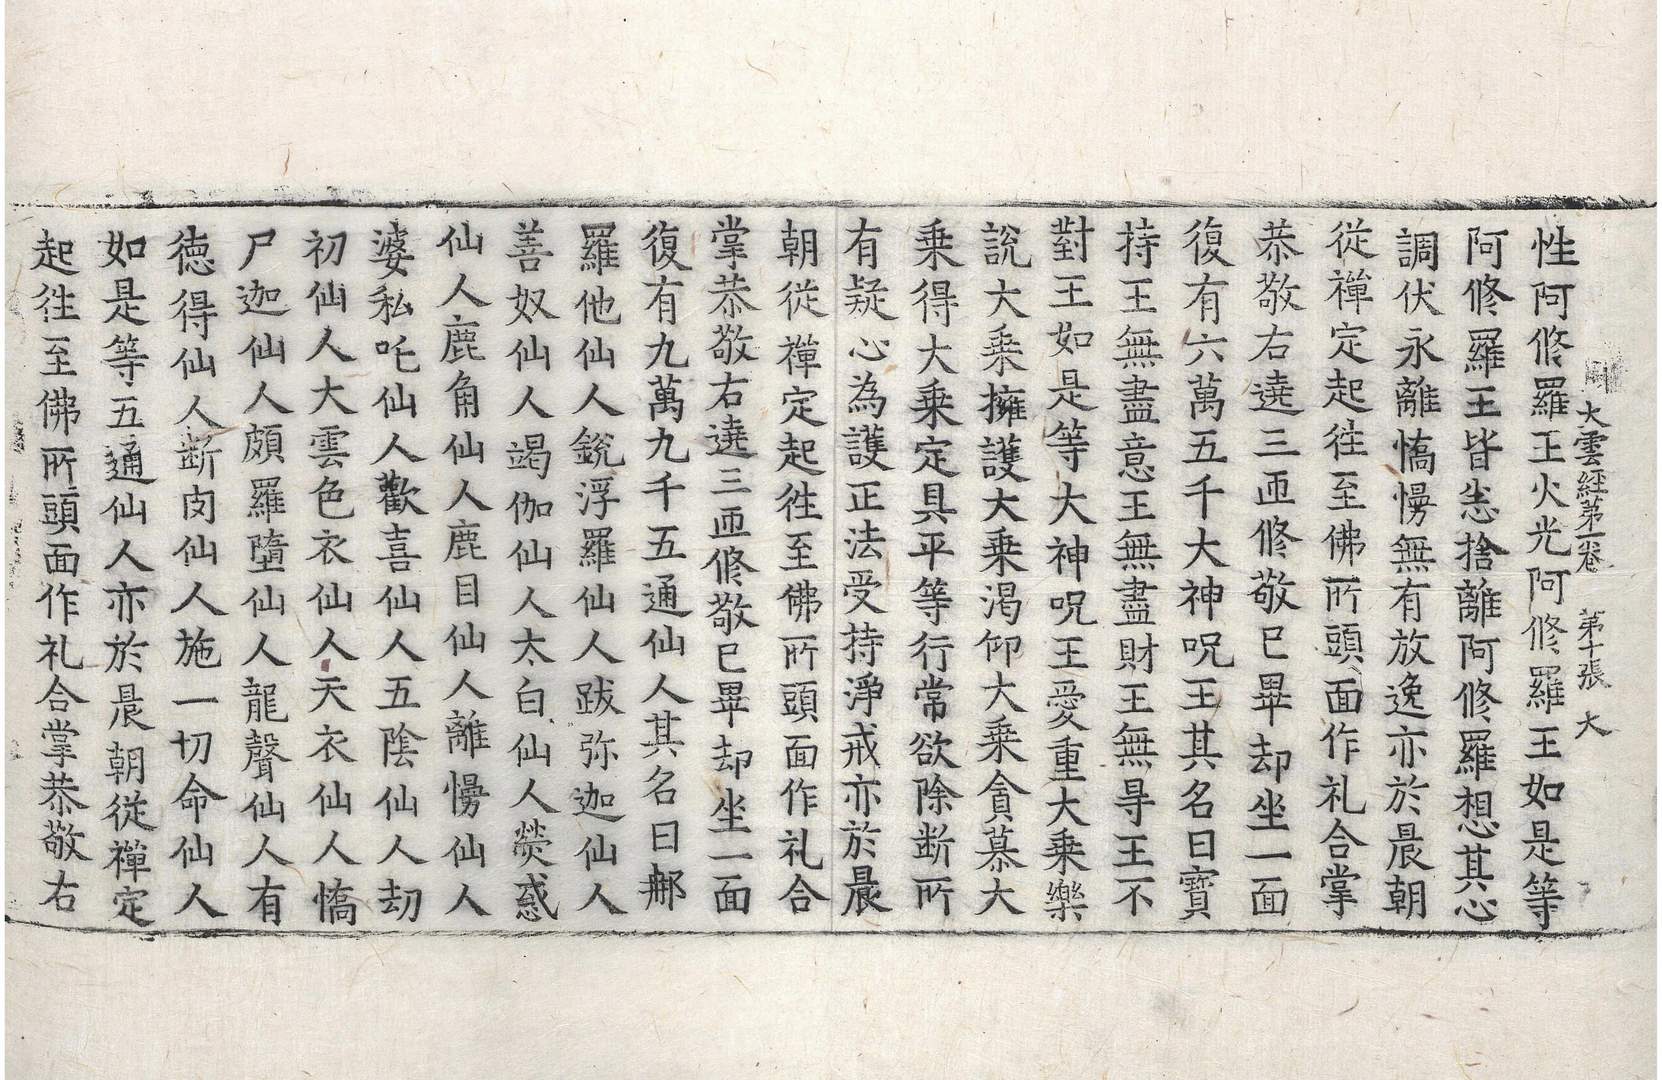 大雲經第一卷 第十張 大
性阿修羅王火光阿修羅王如是等
阿修羅王皆悉捨離阿修羅想其心
調伏永離憍慢無有放逸亦於晨朝
從禪定起往至佛所頭面作礼合掌
恭敬右遶三匝修敬已畢却坐一面
復有六萬五千大神呪王其名曰寶
持王無盡意王無盡財王無㝵王不
對王如是等大神呪王愛重大乘樂
說大乘擁護大乘渴仰大乘貪慕大
乘得大乘定具平等行常欲除断所
有疑心為護正法受持淨戒亦於晨
朝從禪定起往至佛所頭面作礼合
掌恭敬右遶三匝修敬已畢却坐一面
復有九萬九千五通仙人其名曰那
羅他仙人銳浮羅仙人跋弥迦仙人
善奴仙人竭伽仙人太白仙人熒惑
仙人鹿角仙人鹿目仙人離慢仙人
婆私吒仙人歡喜仙人五陰仙人刧
初仙人大雲色衣仙人天衣仙人憍
尸迦仙人頗羅墮仙人龍聲仙人有
德得仙人断肉仙人施一切命仙人
如是等五通仙人亦於晨朝從禪定
起往至佛所頭面作礼合掌恭敬右